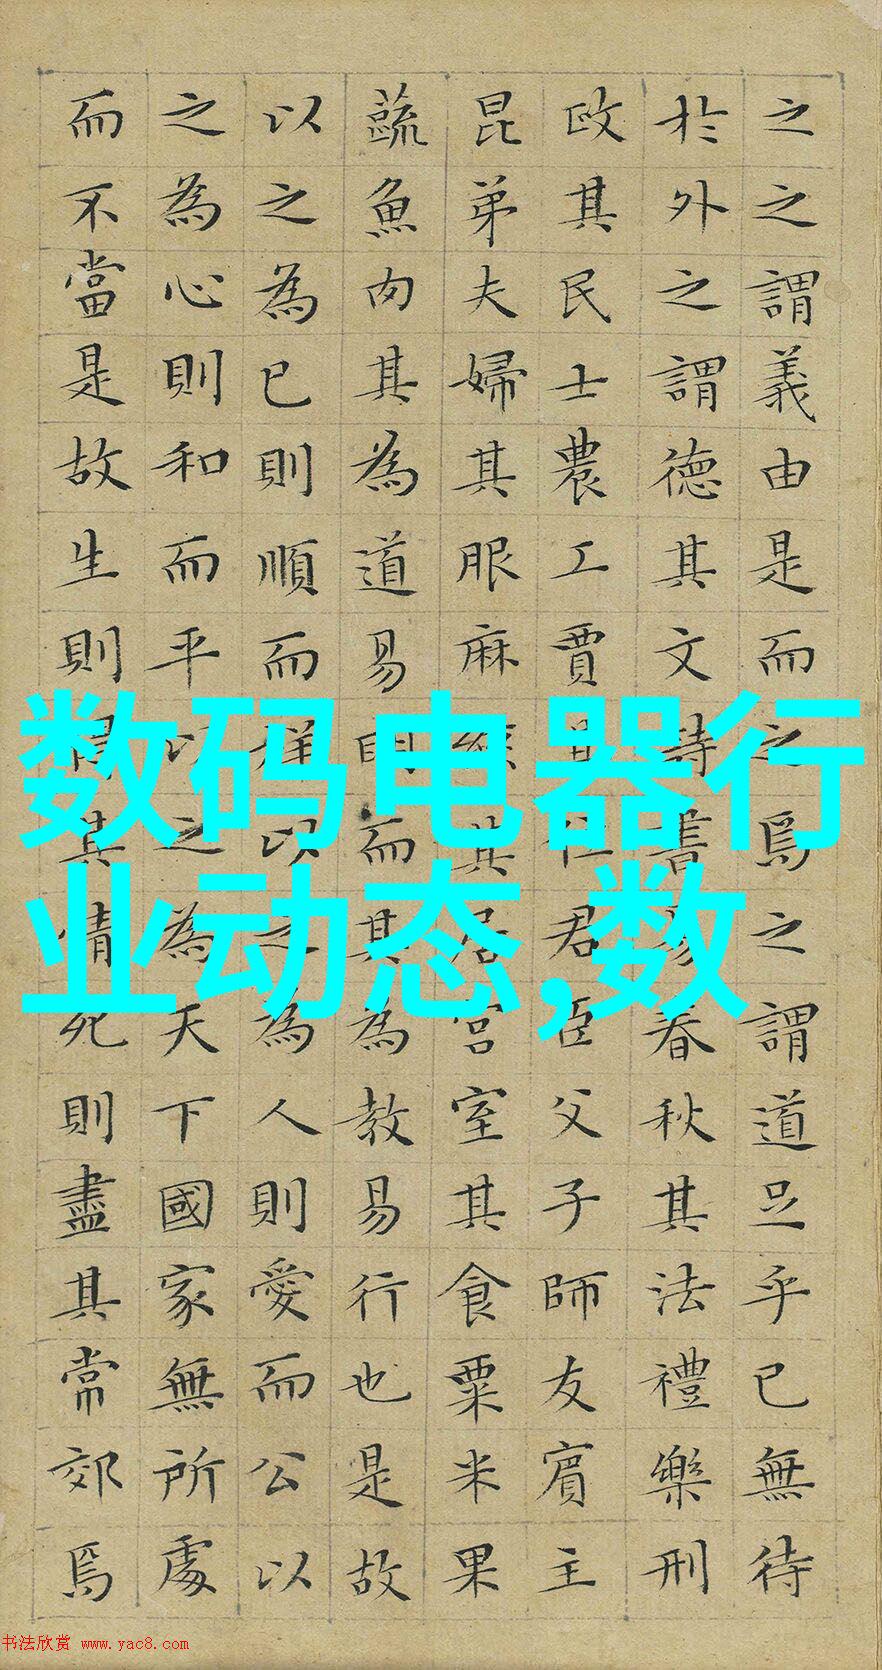 之之謂義由是而之焉之謂道足乎已無待
於外之謂德其文詩書易春秋其法禮樂刑
政其民士農工賈其位君臣父子師友賓主
昆弟夫婦其服麻絲其居宮室其食粟米果
蔬魚肉其為道易明而其為教易行也是故
以之為已則順而祥以之為人則愛而公以
之為心則和而平以之為天下國家無所處
而不當是故生則得其情死則盡其常郊焉
数码电器行
业动态,数
书法欣赏 www.yac8.com